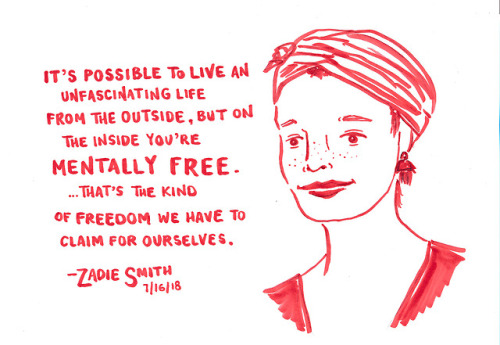 IT'S POSSIBLE TO LIVE AN
UNFASCINATING LIFE
FROM THE OUTSIDE, BUT ON
THE INSIDE YOU'RE
MENTALLY FREE.
...THAT'S THE KIND
OF FREEDOM WE HAVE TO
CLAIM FOR OURSELVES.
-ZADIE SMITH
7/16/18